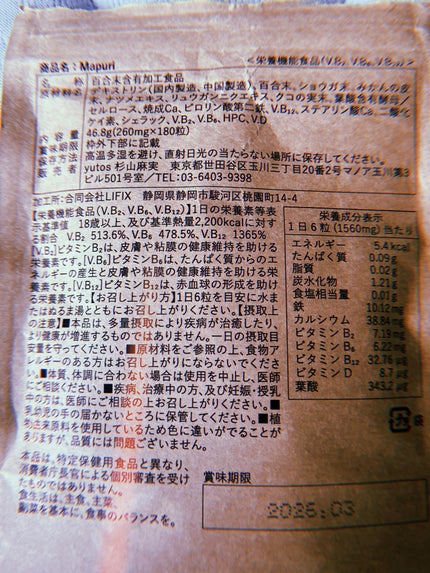 商品名:Mapuri <栄養機能食品(V.B₂, V.B₆, V.B₁₂)>
名称 百合末含有加工食品
デキストリン(国内製造、中国製造)、百合末、ショウガ末、みかんの皮
末、ナツメエキス、リュウガンニクエキス、クコの実末、葉酸含有酵母/
セルロース、焼成Ca、ピロリン酸第二鉄、V.B₁₂、ステアリン酸Ca、二酸化
ケイ素、シェラック、V.B₂、V.B₆、HPC、V.D
内容量 46.8g(260mg×180粒)
賞味期限 枠外下部に記載
保存方法 高温多湿を避け、直射日光の当たらない場所に保存してください。
販売者 yutos 杉山麻実 東京都世田谷区玉川三丁目20番2号マノア玉川第3
ビル501号室/TEL:03-6403-9398
加工所:合同会社LIFIX 静岡県静岡市駿河区桃園町14-4
【栄養機能食品(V.B₂、V.B₆、V.B₁₂)】1日の栄養素等表
示基準値 18歳以上、及び基準熱量2,200kcalに対す
る割合 V.B₂ 513.6%、V.B₆ 478.5%、V.B₁₂ 1365%
【V.B₂】ビタミンB₂は、皮膚や粘膜の健康維持を助ける
栄養素です。【V.B₆】ビタミンB₆は、たんぱく質からのエ
ネルギーの産生と皮膚や粘膜の健康維持を助ける栄
養素です。【V.B₁₂】ビタミンB₁₂は、赤血球の形成を助け
る栄養素です。【お召し上がり方】1日6粒を目安に水ま
たはぬるま湯とともにお召し上がりください。【摂取上
の注意】■本品は、多量摂取により疾病が治癒したり、
より健康が増進するものではありません。一日の摂取目
安量を守ってください。■原材料をご参照の上、食物ア
レルギーのある方はお召し上がりにならないでくださ
い。■体質、体調に合わない場合は使用を中止し、医師
にご相談ください。■疾病、治療中の方、及び妊娠・授乳
中の方は、医師にご相談の上お召し上がりください。■
乳幼児の手の届かないところに保管してください。■植
物由来原料を使用しているため色に違いがでることが
ありますが、品質には問題ございません。
栄養成分表示
1日6粒(1560mg)当たり
エネルギー 5.4kcal
たんぱく質 0.09g
脂質 0.02g
炭水化物 1.21g
食塩相当量 0.01g
鉄 10.12mg
カルシウム 38.84mg
ビタミンB₂ 7.19mg
ビタミンB₆ 6.22mg
ビタミンB₁₂ 32.76μg
ビタミンD 8.7μg
葉酸 343.2μg
本品は、特定保健用食品と異なり、
消費者庁長官による個別審査を受け
たものではありません。
食生活は、主食、主菜、
副菜を基本に、食事のバランスを。
賞味期限
2026.03